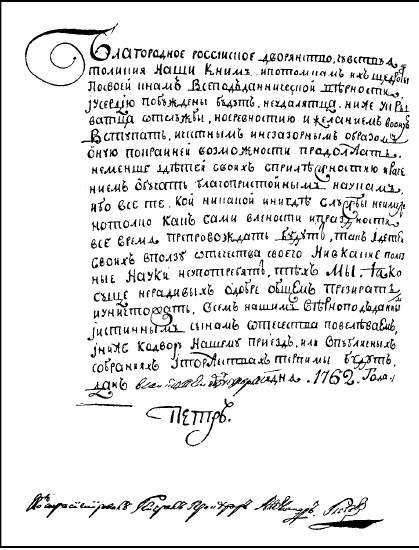 Благородное россиское дворянство, чувствуя
толикия наши к нимъ и потомкамъ ихъ щедроты
по своей к намъ всеподданнической вѣрности
и усердию побуждены будутъ, не удалятца, ниже укры
ватца от службы, но с ревностию и желаниемъ в оную
вступать, и честнымъ и незазорнымъ образомъ
оную по крайней возможности продолжать,
не менше и дѣтей своихъ с прилѣжностию и раче
ниемъ обучать благопристойнымъ наукамъ,
ибо все те, кои никакой и нигдѣ службы не имѣли
но толко какъ сами в лености и праздности
все время препровождать будутъ, такъ и дѣтей
своихъ в ползу отечества своего ни в какие полез
ные науки не употреблять, тѣхъ мы, яко
суще нерадивыхъ о добре общемъ презирать
и уничтожать, всемъ нашимъ вѣрноподданнымъ
и истиннымъ сынамъ отечества повелѣваемъ,
и ниже ко двору нашему приездъ, или в публичныхъ
собранияхъ и торжествахъ терпимы будутъ.
данъ дня. 1762. Года.
Петръ.